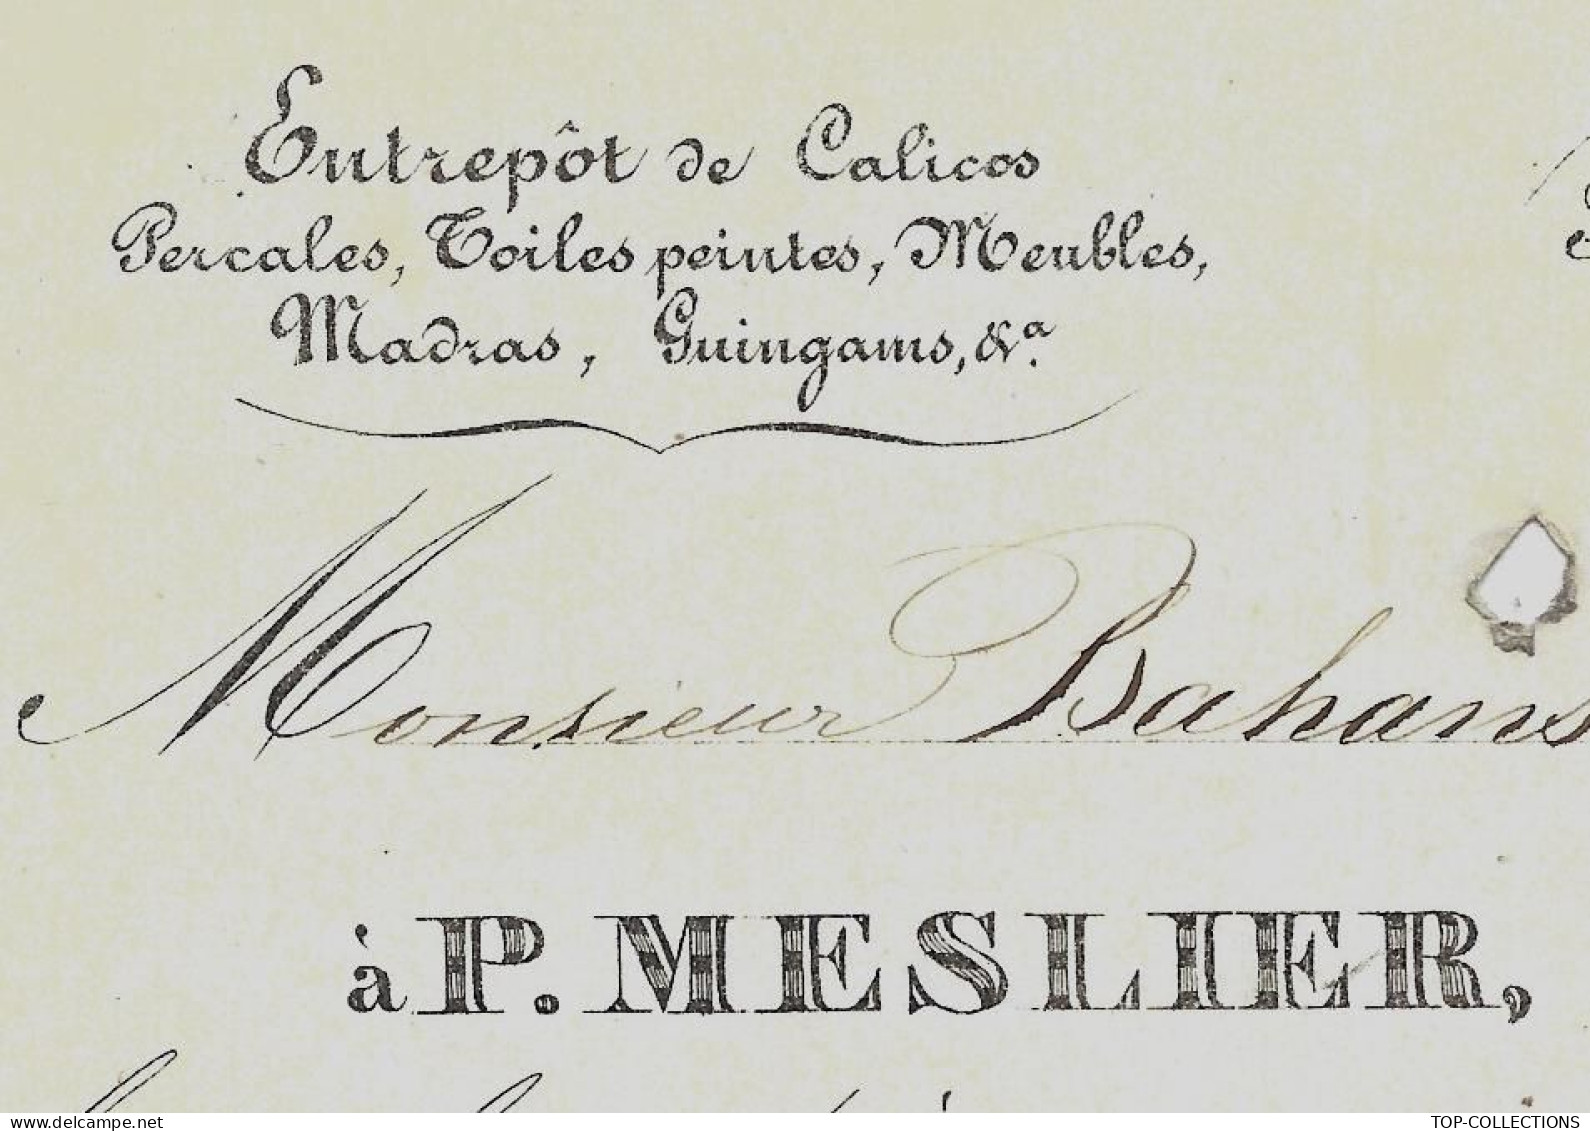 Entrepôt de Calicos
Percales, Toiles peintes, Meubles,
Madras, Guingams, &a.
Monsieur Bahans
à P. MESLIER,
www.delcampe.net
TOP-COLLECTIONS